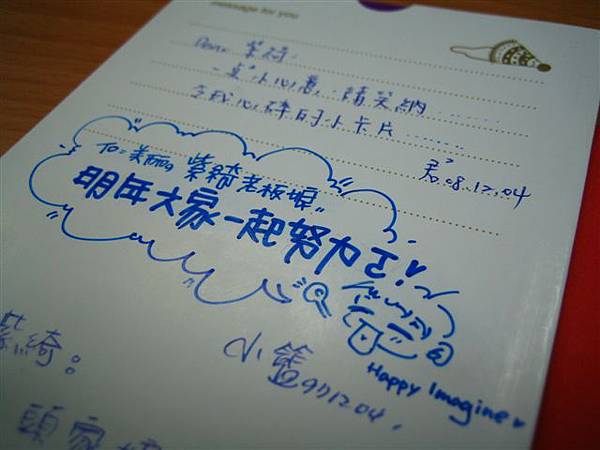 message for you
Dear 紫綺
一点小心意,請笑納......
令我心碎的小卡片.......
君² 08.12.04
To=美丽的 紫綺老板娘"
明年大家一起努力ㄛ!
Happy Imagine ♥
小鱼 971204.
紫綺:
頭家